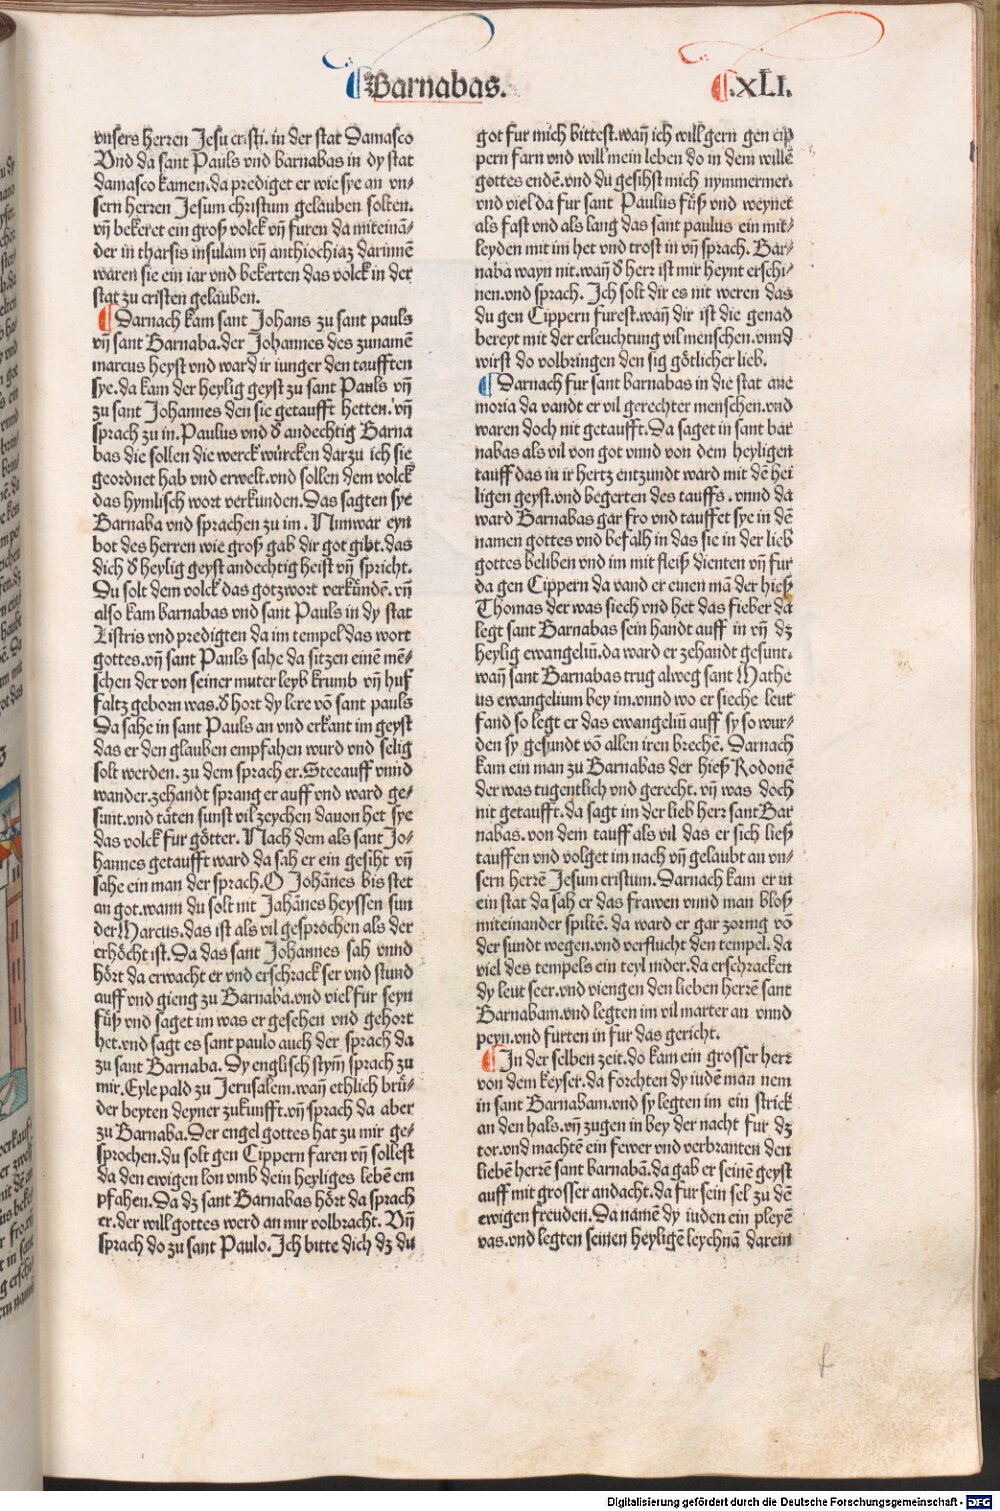 Barnabas.
.XLI.
vnsers herren Jesu cristi. in der stat Damasco
Vnd da sant Pauls vnd barnabas in dy stat
damasco kamen. da prediget er wie sye an vn-
sern herren Jesum christum gelauben solten.
vñ bekeret ein groß volck vñ furen da miteinā-
der in tharsis insulam vñ anthiochiaʒ darinnē
waren sie ein iar vnd bekerten das volck in der
stat zu cristen gelauben.
Darnach kam sant Johans zu sant pauls
vñ sant Barnaba. der Johannes des zunamē
marcus heyst vnd ward ir iunger den taufften
sye. da kam der heylig geyst zu sant Pauls vñ
zu sant Johannes den sie getaufft hetten. vñ
sprach zu in. Paulus vnd ð andechtig Barna
bas die sollen die werck würcken darzu ich sie
geordnet hab vnd erwelt. vnd sollen dem volck
das hymlisch wort verkunden. Das sagten sye
Barnaba vnd sprachen zu im. Nunwar eyn
bot des herren wie groß gab dir got gibt. das
dich ð heylig geyst andechtig heist vñ spricht.
Du solt dem volck das gotzwort verkündē. vñ
also kam barnabas vnd sant Pauls in dy stat
Listris vnd predigten da im tempel das wort
gottes. vñ sant Pauls sahe da sitzen einē mē-
schen der von seiner muter leyb krumb vñ huf
faltz geborn was. ð hort dy lere vō sant pauls
Da sahe in sant Pauls an vnd erkant im geyst
das er den glauben empfahen wurd vnd selig
solt werden. zu dem sprach er. Steeauff vnnd
wander. zehandt sprang er auff vnd ward ge-
sunt. vnd täten sunst vil zeychen dauon het sye
das volck fur götter. Nach dem als sant Jo-
hannes getaufft ward da sah er ein gesiht vñ
sahe ein man der sprach. O Johānes bis stet
an got. wann du solt nit Jahānes heyssen sun
der Marcus. das ist als vil gesprochen als der
erhöcht ist. Da das sant Johannes sah vnnd
hört da erwacht er vnd erschrack ser vnd stund
auff vnd gieng zu Barnaba. vnd viel fur seyn
füß vnd saget im was er gesehen vnd gehort
het. vnd sagt es sant paulo auch der sprach da
zu sant Barnaba. Dy englisch stym̄ sprach zu
mir. Eyle pald zu Jerusalem. wañ ethlich brü-
der beyten deyner zukunfft. vñ sprach da aber
zu Barnaba. Der engel gottes hat zu mir ge-
sprochen. du solt gen Cippern faren vñ sollest
da den ewigen lon vmb dein heyliges lebē em
pfahen. Da dʒ sant Barnabas hört da sprach
er. der will gottes werd an mir volbracht. Vñ
sprach do zu sant Paulo. Ich bitte dich dʒ du
got fur mich bittest. wañ ich will gern gen cip
pern farn vnd will mein leben do in dem willē
gottes endē. vnd du gesihst mich nymmermer.
vnd viel da fur sant Paulus füß vnd weynet
als fast vnd als lang das sant paulus ein mit-
leyden mit im het vnd trost in vñ sprach. Bar-
naba wayn nit. wañ ð herr ist mir heynt erschi-
nen. vnd sprach. Ich solt dir es nit weren das
du gen Cippern furest. wañ dir ist die genad
bereyt mit der erleuchtung vil menschen. vnnd
wirst do volbringen den sig götlicher lieb.
Darnach fur sant barnabas in die stat ane
moria da vandt er vil gerechter menschen. vnd
waren doch nit getaufft. Da saget in sant bar
nabas als vil von got vnnd von dem heyligen
tauff das in ir hertz entzundt ward mit dē hei
ligen geyst. vnd begerten des tauffs. vnnd da
ward Barnabas gar fro vnd tauffet sye in dē
namen gottes vnd befalh in das sie in der lieb
gottes beliben vnd im mit fleiß dienten vñ fur
da gen Cippern da vand er einen mā der hieß
Thomas der was siech vnd het das fieber da
legt sant Barnabas sein handt auff in vñ dʒ
heylig ewangeliū. da ward er zehandt gesunt.
wañ sant Barnabas trug alweg sant Mathe
us ewangelium bey im. vnnd wo er sieche leut
fand so legt er das ewangeliū auff sy so wur-
den sy gesundt vō allen iren brechē. Darnach
kam ein man zu Barnabas der hieß Rodonē
der was tugentlich vnd gerecht. vñ was doch
nit getaufft. da sagt im der lieb herr sant Bar
nabas. von dem tauff als vil das er sich ließ
tauffen vnd volget im nach vñ gelaubt an vn-
sern herrē Jesum cristum. Darnach kam er in
ein stat da sah er das frawen vnnd man bloß
miteinander spiltē. da ward er gar zornig vō
der sundt wegen. vnd verflucht den tempel. da
viel des tempels ein teyl nider. da erschracken
dy leut seer. vnd viengen den lieben herrē sant
Barnabam. vnd legten im vil marter an vnnd
peyn. vnd furten in fur das gericht.
In der selben zeit. do kam ein grosser herr
von dem keyser. da forchten dy iudē man nem
in sant Barnabam. vnd sy legten im ein strick
an den hals. vñ zugen in bey der nacht fur dʒ
tor. vnd machtē ein fewer vnd verbranten den
liebē herrē sant barnabā. da gab er seinē geyst
auff mit grosser andacht. da fur sein sel zu dē
ewigen freuden. Da namē dy iuden ein pleyē
vas. vnd legten seinen heyligē leychnā darein
Digitalisierung gefördert durch die Deutsche Forschungsgemeinschaft - DFG